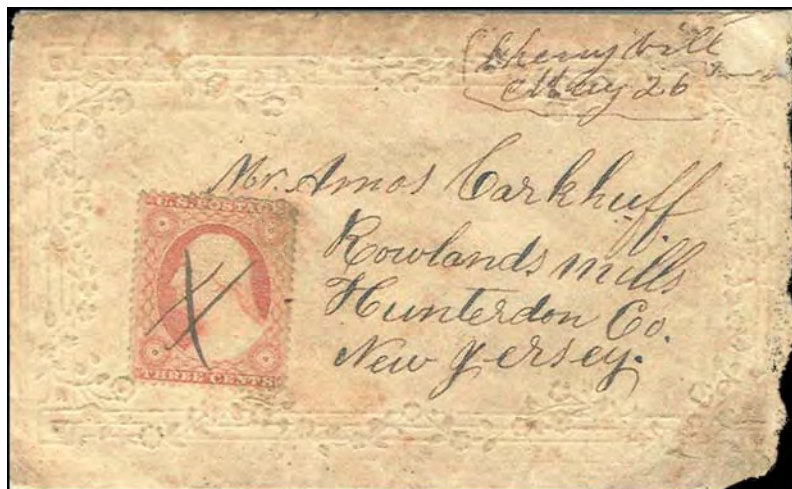 Cherryville
May 26
Mr. Amos Carkhuff
Rowlands mills
Hunterdon Co.
New Jersey.
U.S. POSTAGE
THREE CENTS